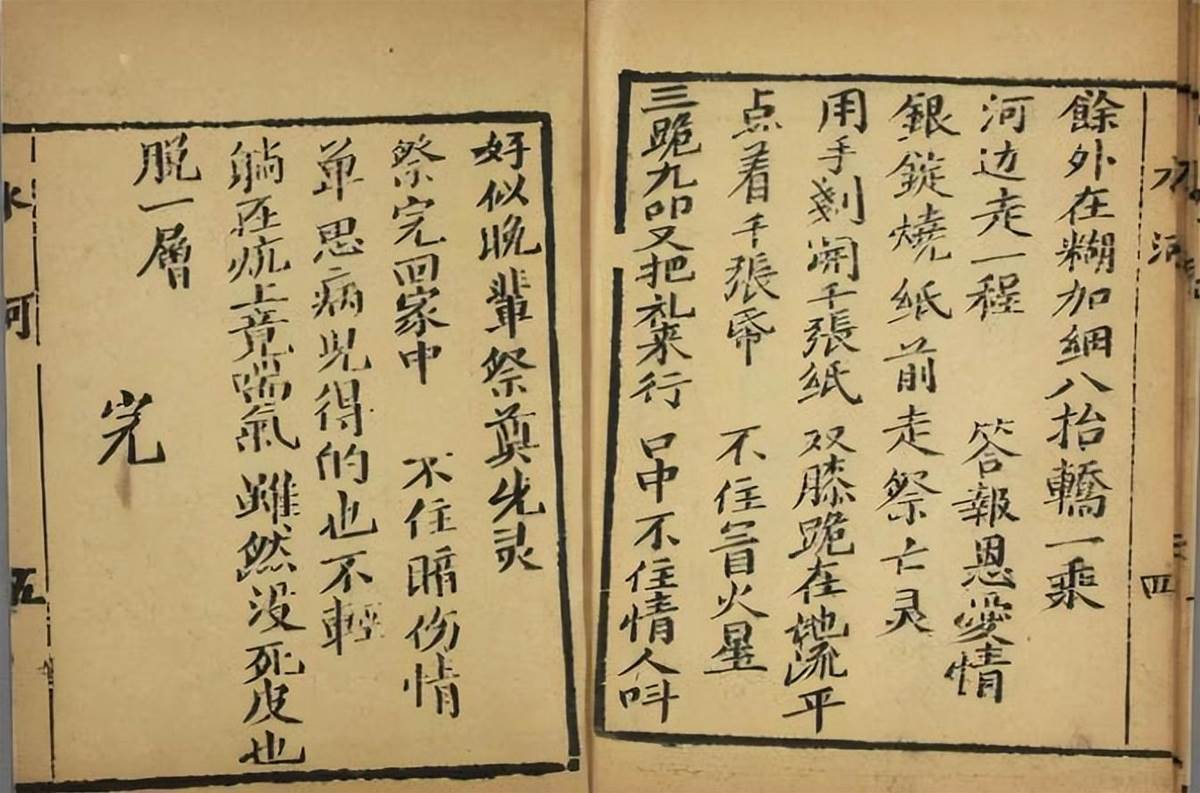 餘外在糊加綑八抬轎一乘
河边走一程　答報恩愛情
銀錠燒紙前走祭亡灵
用手剗開千張紙　双膝跪在地流平
点着千張帋　不住冒火星
三跪九叩又把礼来行　口中不住情人叫
好似晚輩祭奠先灵
祭完回家中　不住暗伤情
单思病児得的也不輕
躺在炕上竟喘氣　雖然没死皮也
脱一層
完
水河
五
四